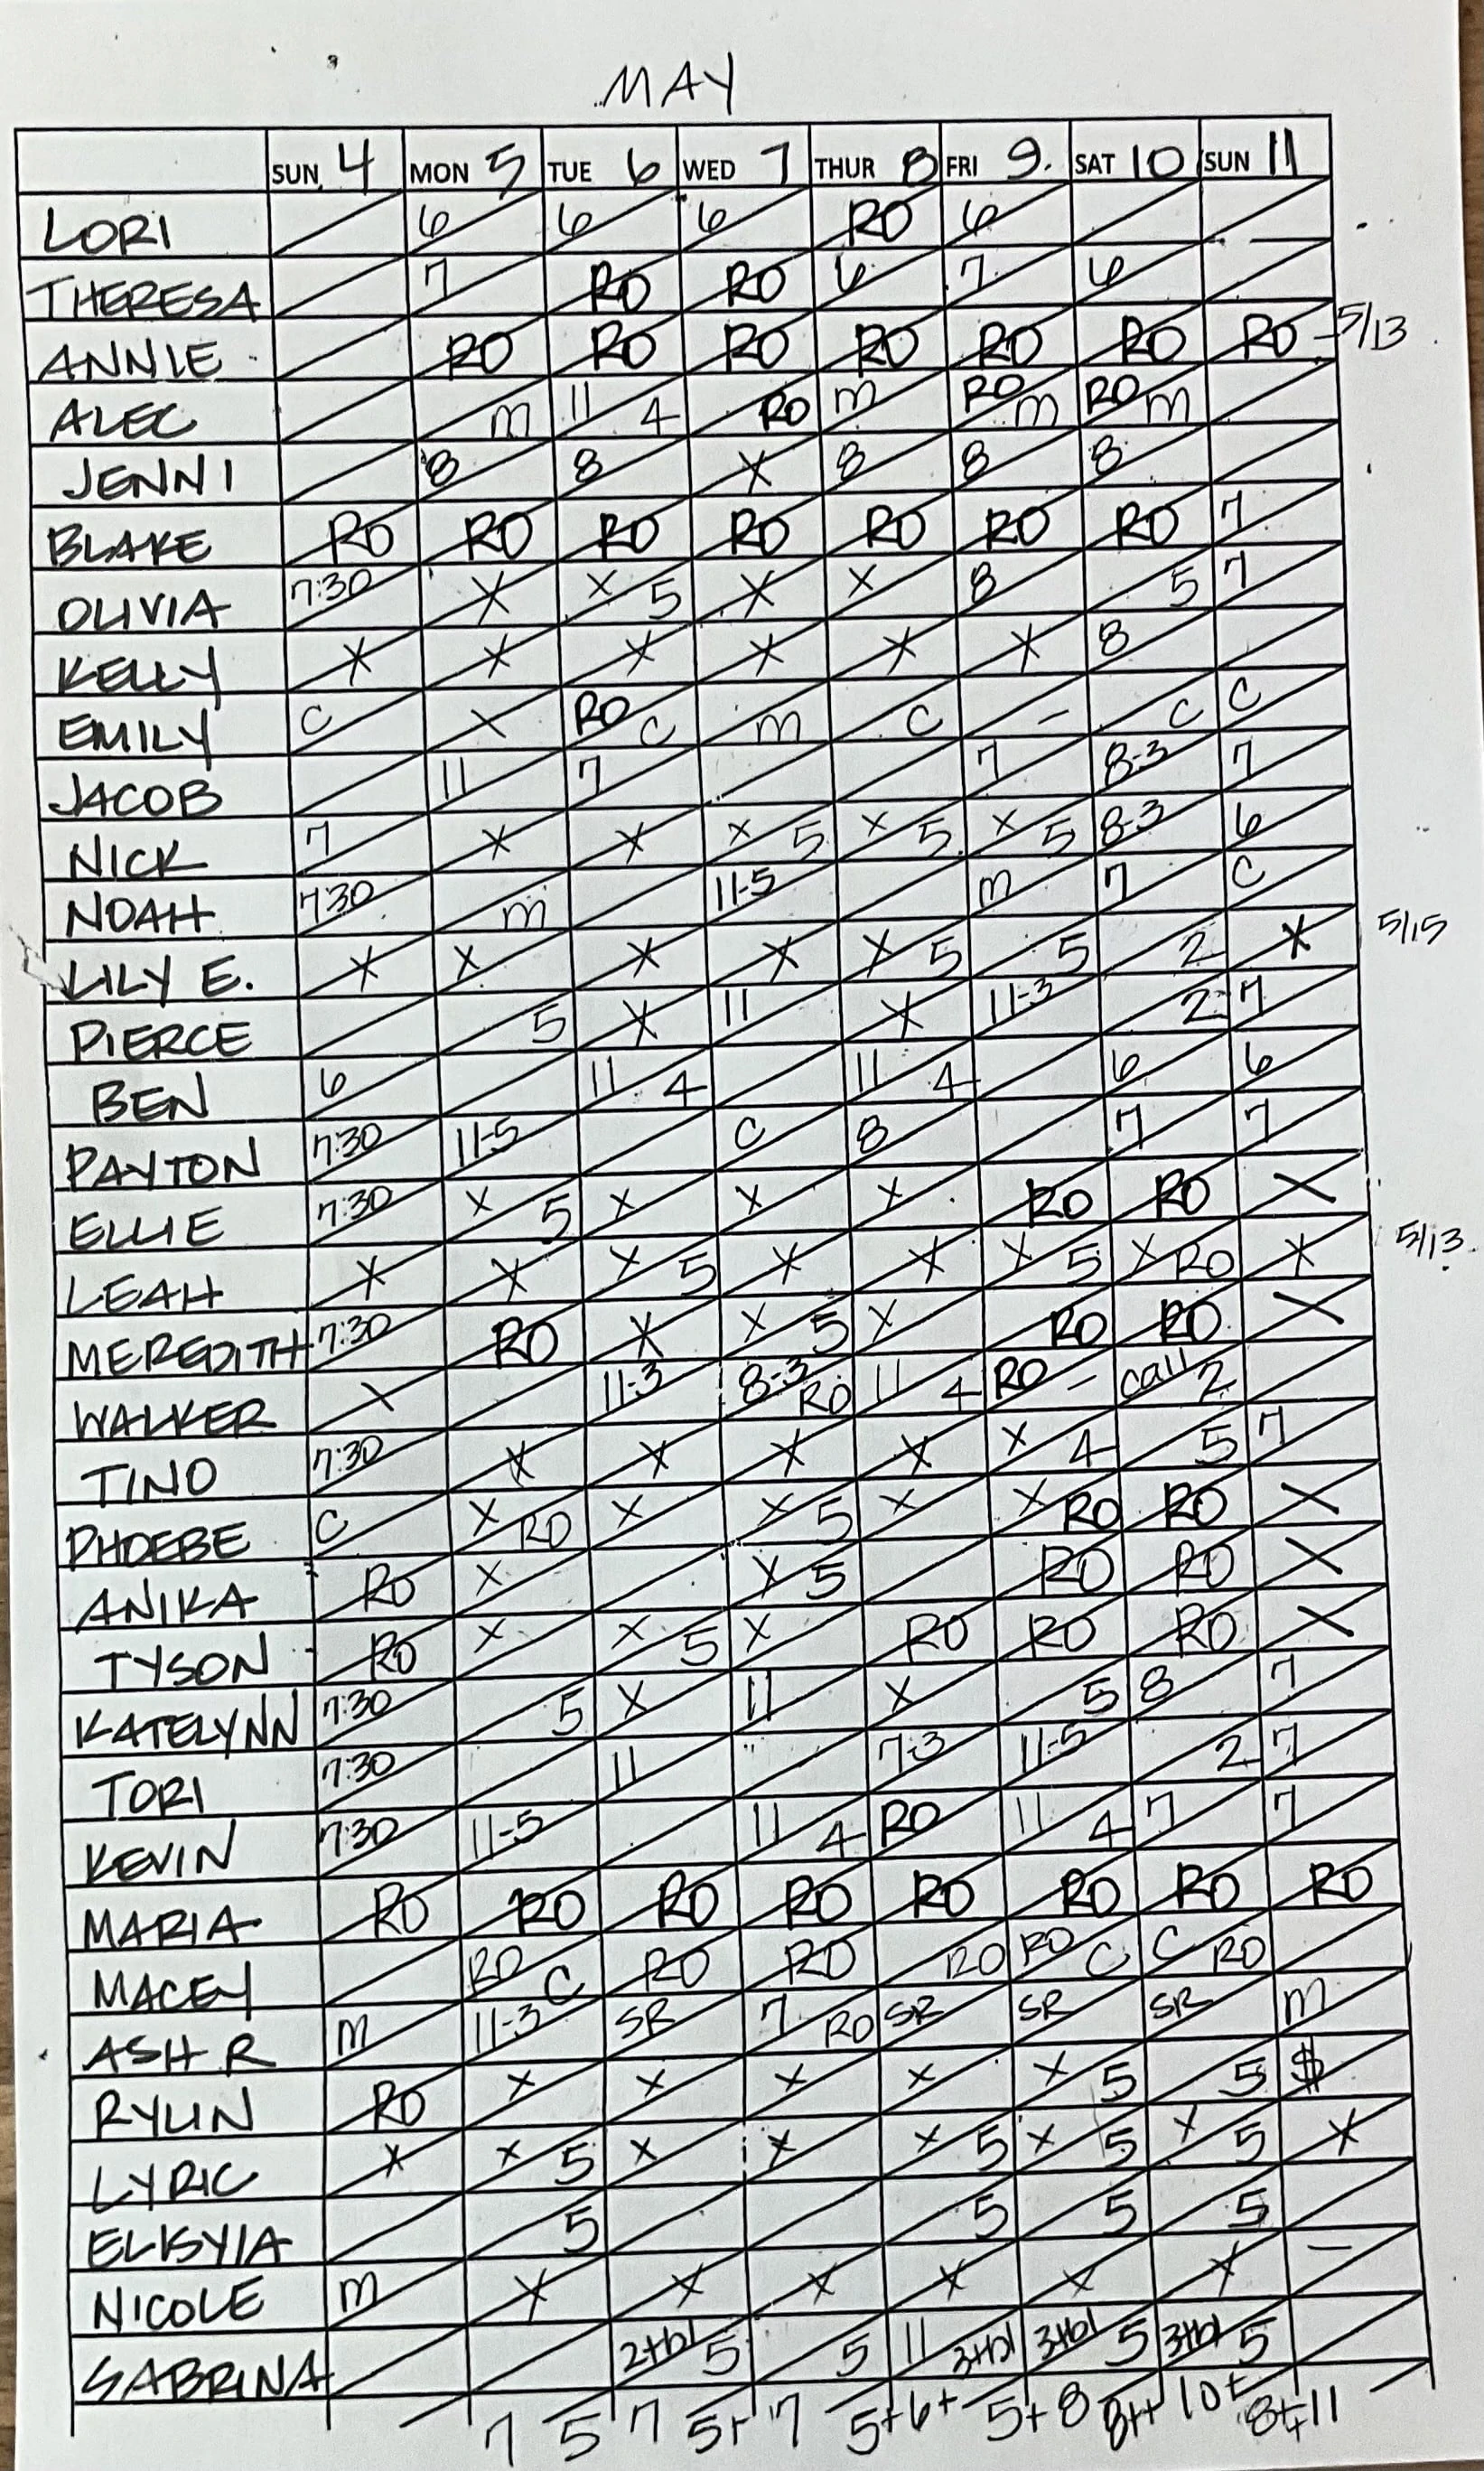 MAY
SUN 4 MON 5 TUE 6 WED 7 THUR 8 FRI 9. SAT 10 SUN 11
LORI 6 6 6 RO 6
THERESA 7 RO RO 6 7 6
ANNIE RO RO RO RO RO RO RO -5/13
ALEC m 11 4 RO m RO m RO m
JENNI 8 8 X 8 8 8
BLAKE RO RO RO RO RO RO RO 7
OLIVIA 7:30 X X 5 X X 8 5 7
KELLY X X X X X X 8
EMILY C X RO C m C - C C
JACOB 11 7 7 8-3 7
NICK 7 X X X 5 X 5 X 5 8-3 6
NOAH 7:30 m 11-5 m 7 C
LILY E. X X X X X 5 5 2 X 5/15
PIERCE 5 X 11 X 11-3 2 7
BEN 6 11 4 11 4 6 6
PAYTON 7:30 11-5 C 8 7 7
ELLIE 7:30 X 5 X X X RO RO X
LEAH X X X 5 X X X 5 X RO X 5/13
MEREDITH 7:30 RO X X 5 X RO RO X
WALKER X 11-3 8-3 RO 11 4 RO - call 2
TINO 7:30 X X X X X 4 5 7
PHOEBE C X RO X X 5 X X RO RO X
ANIKA RO X X 5 RO RO X
TYSON RO X X 5 X RO RO RO X
KATELYNN 7:30 5 X 11 X 5 8 7
TORI 7:30 11 7-3 11-5 2 7
KEVIN 7:30 11-5 11 4 RO 11 4 7 7
MARIA RO RO RO RO RO RO RO RO
MACEY RO C RO RO RO RO C C RO
ASH R m 11-3 SR 7 RO SR SR SR m
RYLIN RO X X X X X 5 5 $
LYRIC X X 5 X X X 5 X 5 X 5 X
5 5 5 5
NICOLE m X X X X X X -
SABRINA 2+bl 5 5 11 3+bl 3+bl 5 3+bl 5
7 5 7 5+ 7 5+ 6+ 5+ 8 8++ 10+ 8+ 11